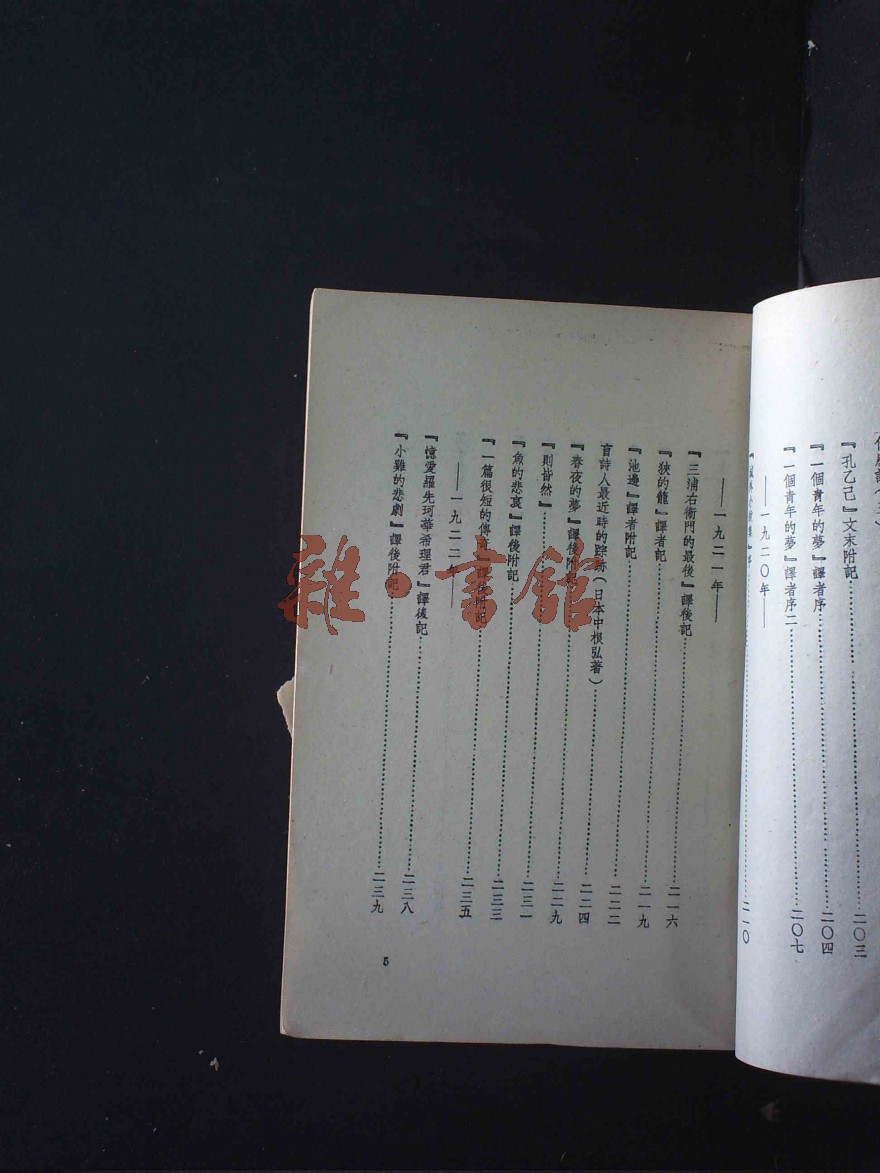 『孔乙己』文末附記……二〇三
『一個青年的夢』譯者序……二〇四
『一個青年的夢』譯者序二……二〇七
——一九二〇年——
……二一〇
——一九二一年——
『三浦右衛門的最後』譯後記……二一六
『狹的籠』譯者記……二一九
『池邊』譯者附記……二二二
盲詩人最近時的踪跡(日本中根弘著)……二二四
『春夜的夢』譯後附記……二二九
『則皆然』……二三一
『魚的悲哀』譯後附記……二三三
『一篇很短的傳奇』譯後附記……二三五
——一九二二年——
『憶愛羅先珂華希理君』譯後記……二三八
『小雞的悲劇』譯後附記……二三九
5
雜·書館